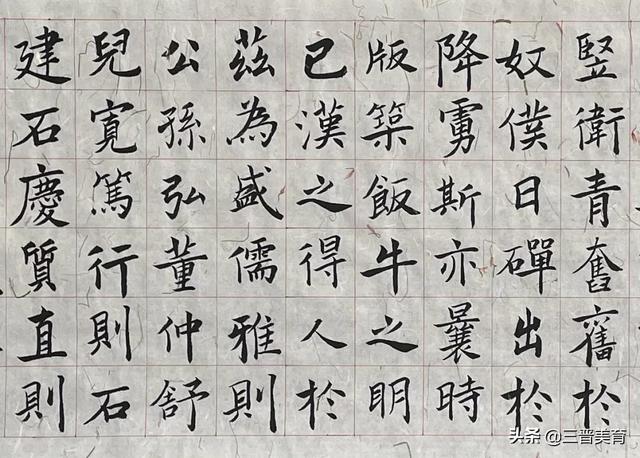 竪衛青奮於
奴僕日磾出於
降虜斯亦曩時
版築飯牛之明
已漢之得人於
茲為盛儒雅則
公孫弘董仲舒
兒寬篤行則石
建石慶質直則
头条 @三晋美育